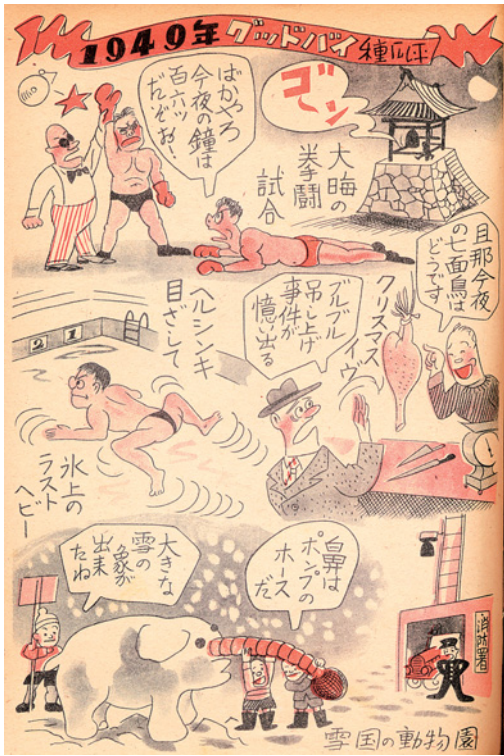 1949年グッドバイ
種瓜平
ゴーン
大晦の
拳闘
試合
ばかやろ
今夜の鐘は
百六ツ
だぞお!
旦那今夜
の七面鳥は
どうです
クリスマス
イヴ
ブルブル
吊し上げ
事件が
憶い出る
ヘルシンキ
目ざして
2
1
氷上の
ラスト
ヘビー
大きな
雪の
象が
出来
たね
鼻は
ポンプの
ホース
だ
消防署
雪国の動物園